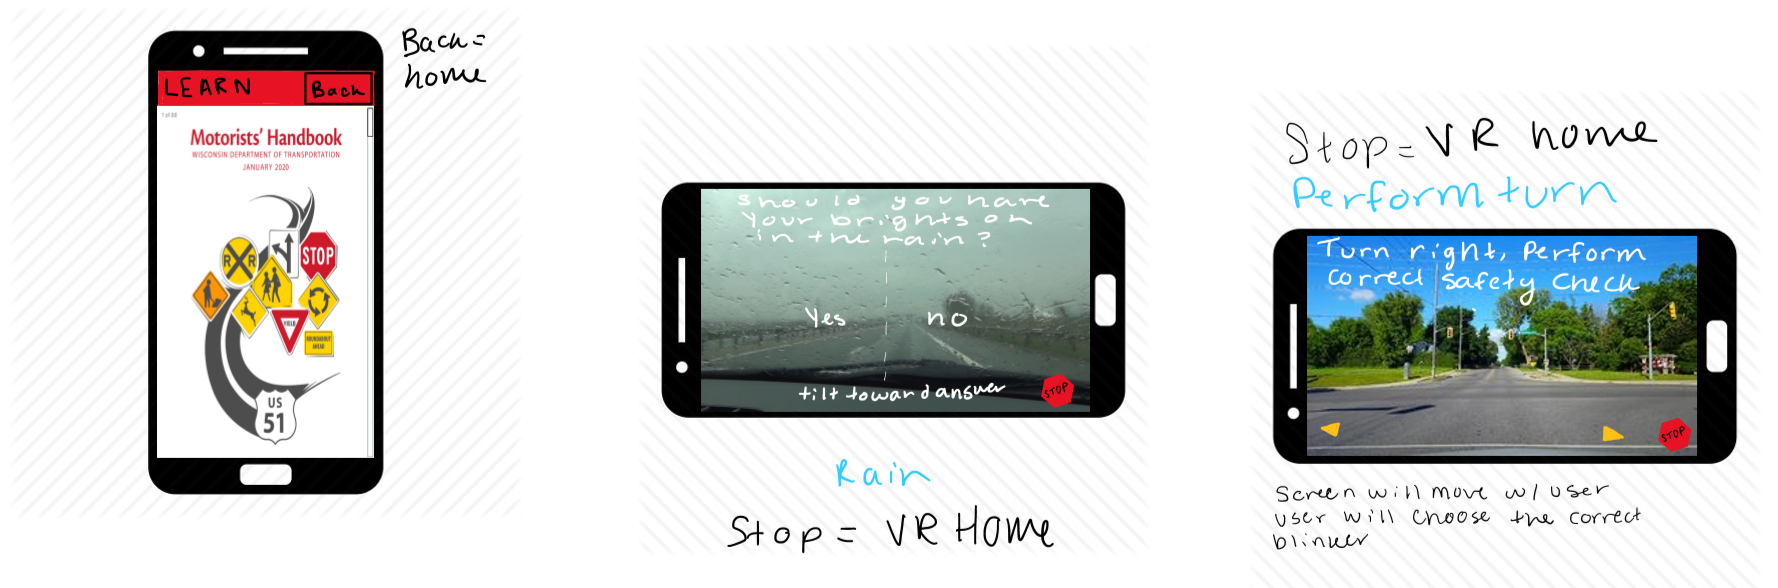 Back =
home
LEARN
Back
1 of 88
Motorists' Handbook
WISCONSIN DEPARTMENT OF TRANSPORTATION
JANUARY 2020
STOP
R R
YIELD
ROUNDABOUT
AHEAD
US
51
should you have
your brights on
in the rain?
Yes no
tilt toward answer
STOP
Rain
Stop = VR Home
Stop = VR home
Perform turn
Turn right, Perform
correct safety check
STOP
Screen will move w/ user
user will choose the correct
blinker